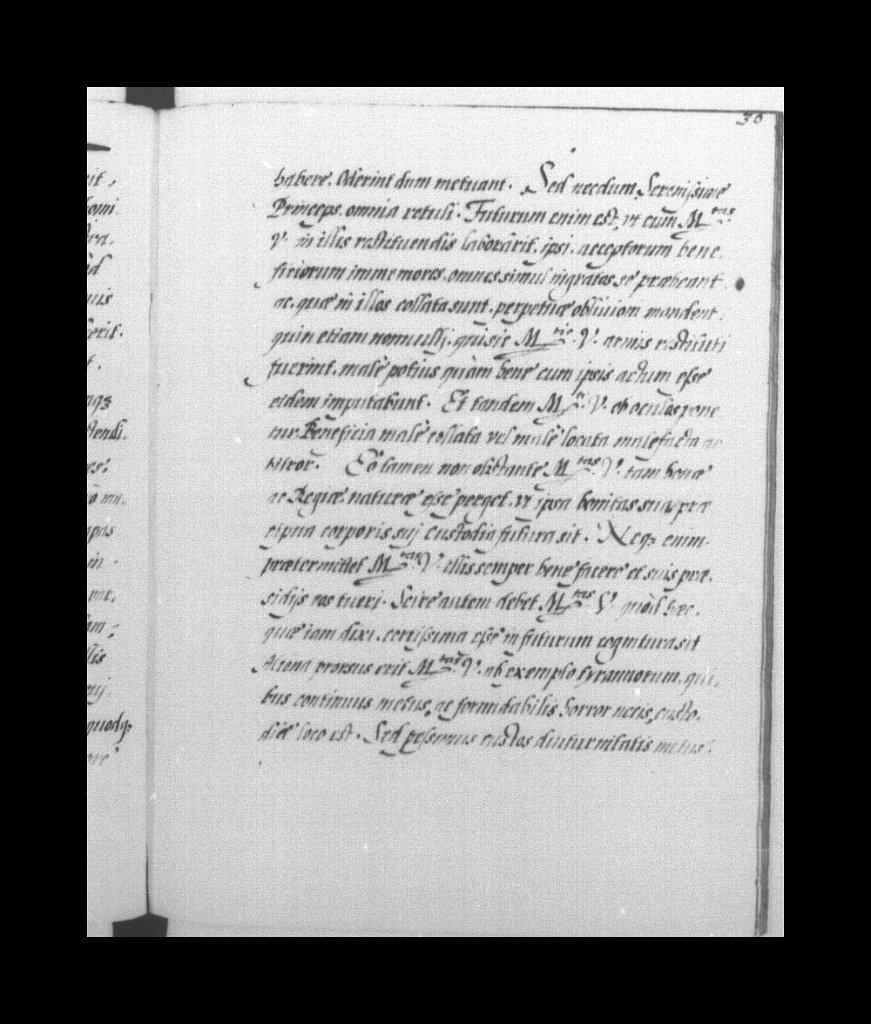 30
habere. Oderint dum metuant. Sed necdum, Serenissime
Princeps. omnia retuli. Futurum enim est, vt cum M.tas
V. in illis restituendis laborarit. ipsi. acceptorum bene.
ficiorum immemores. omnes simul ingratos se præbeant
ac. quæ in illos collata sunt. perpetuæ obliuioni mandent.
quin etiam nonnullj. qui sic M.tis V. armis restituti
fuerint. malè potius quàm bene cum ipsis actum esse
eidem imputabunt. Et tandem M. V. ob oculos pone
tur. Beneficia malè collata vel malè locata malefacta ac
Eo tamen non obstante M.tas V. tam bonæ
ac Regiæ. naturæ esse perget. vt ipsa bonitas sua præ
cipua corporis suj custodia futura sit. Neq3 enim.
prætermittet M.tas V. illis semper bene facere et suis præ.
sidijs eos tueri. Scire autem debet M.tas V. quòd hæc.
quæ iam dixi. certissima esse in futurum cognitura sit
Aliena prorsus erit M.tas V. ab exemplo tyrannorum. qui.
bus continuus metus, ac formidabilis horror necis, custo.
diæ loco est. Sed pessimus custos diuturnitatis metus.